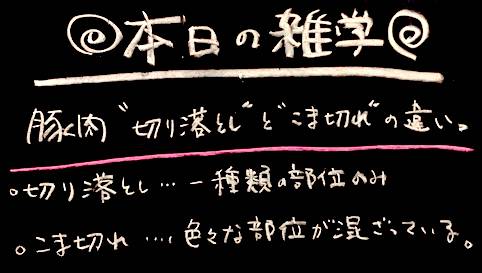 本日の雑学
豚肉"切り落とし"と"こま切れ"の違い。
○切り落とし…一種類の部位のみ
○こま切れ….色々な部位が混ざっている。